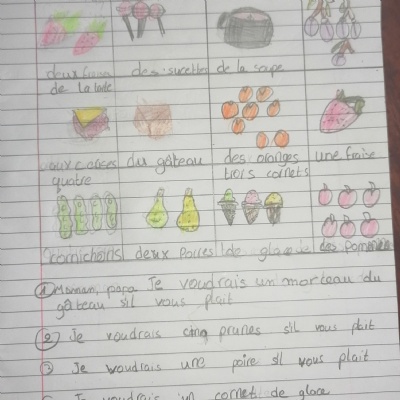 deux des sucettes de la soupe
de la
du gâteau des oranges une fraise
quatre trois cornets
cornichons deux Poires de glace des pommes
① Maman, papa Je voudrais un morteau du
gâteau s'il vous plait
② Je voudrais cinq prunes s'il vous plait
③ Je woudrais une poire sil vous plait
Je voudrais un cornet de glace